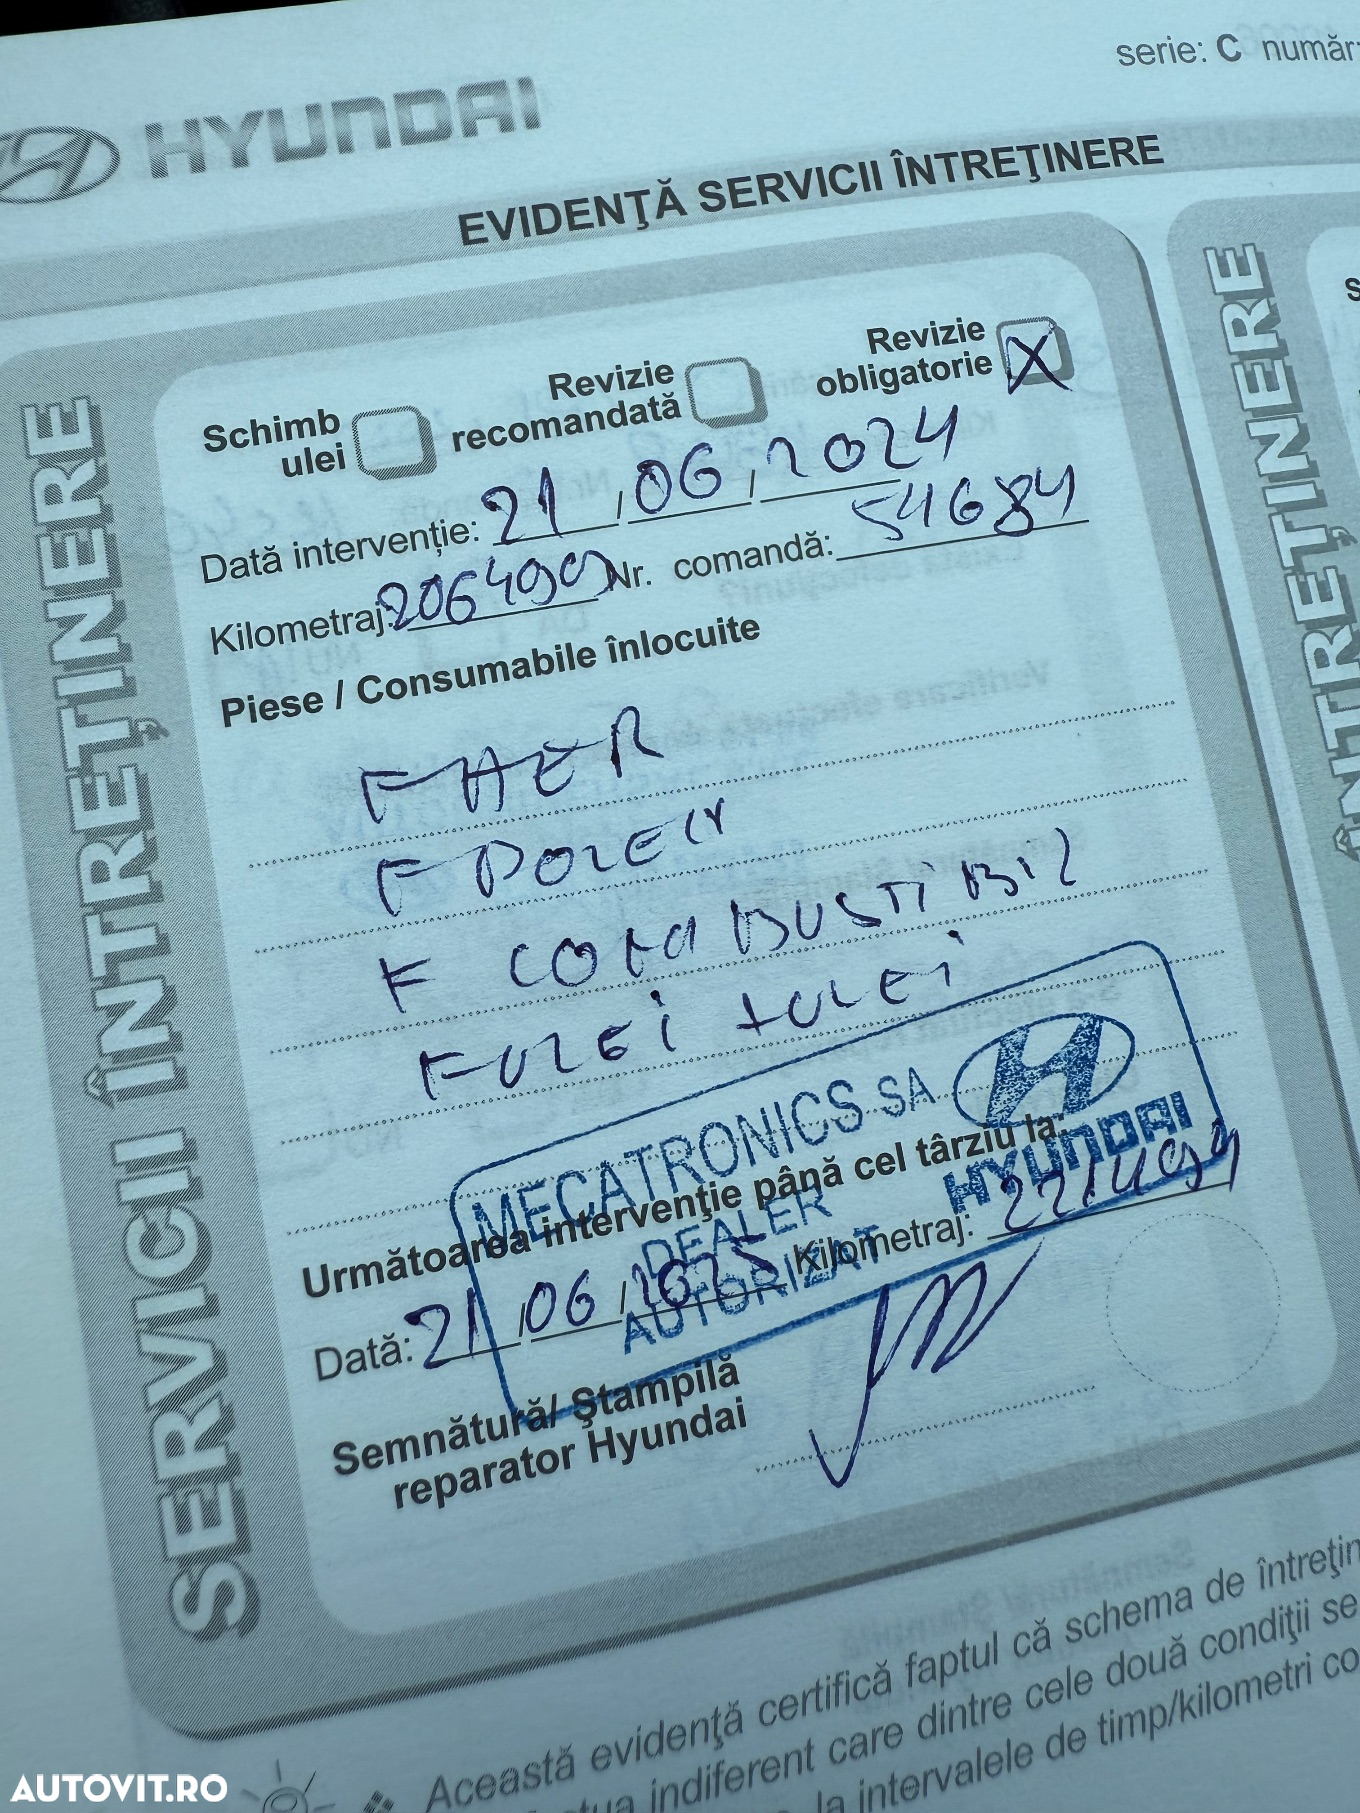 serie: C număr:
HYUNDAI
EVIDENŢĂ SERVICII ÎNTREŢINERE
SERVICII ÎNTREŢINERE
Schimb ulei
Revizie recomandată
Revizie obligatorie X
Dată intervenție: 21 / 06 / 2024
Kilometraj: 206499 Nr. comandă: 54684
Piese / Consumabile înlocuite
F AER
F POLEN
F COMBUSTIBIL
F ULEI + ULEI
MECATRONICS SA
DEALER
AUTORIZAT
HYUNDAI
Următoarea intervenţie până cel târziu la:
Dată: 21 / 06 / 2025 Kilometraj: 221499
Semnătură/ Ştampilă
reparator Hyundai
ÎNTREŢINERE
Această evidenţă certifică faptul că schema de întreţin
indiferent care dintre cele două condiţii se
la intervalele de timp/kilometri co
AUTOVIT.RO